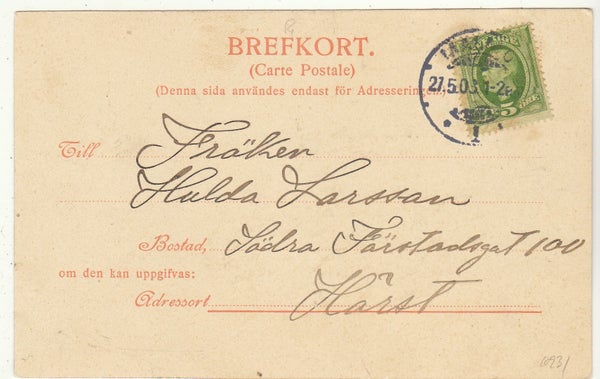 BREFKORT.
(Carte Postale)
(Denna sida användes endast för Adresseringen.)
Till Fröken
Hulda Larsson
Bostad, Södra Förstadsgat 100
om den kan uppgifvas:
Adressort Härst
27.5.03 1-2
1
5